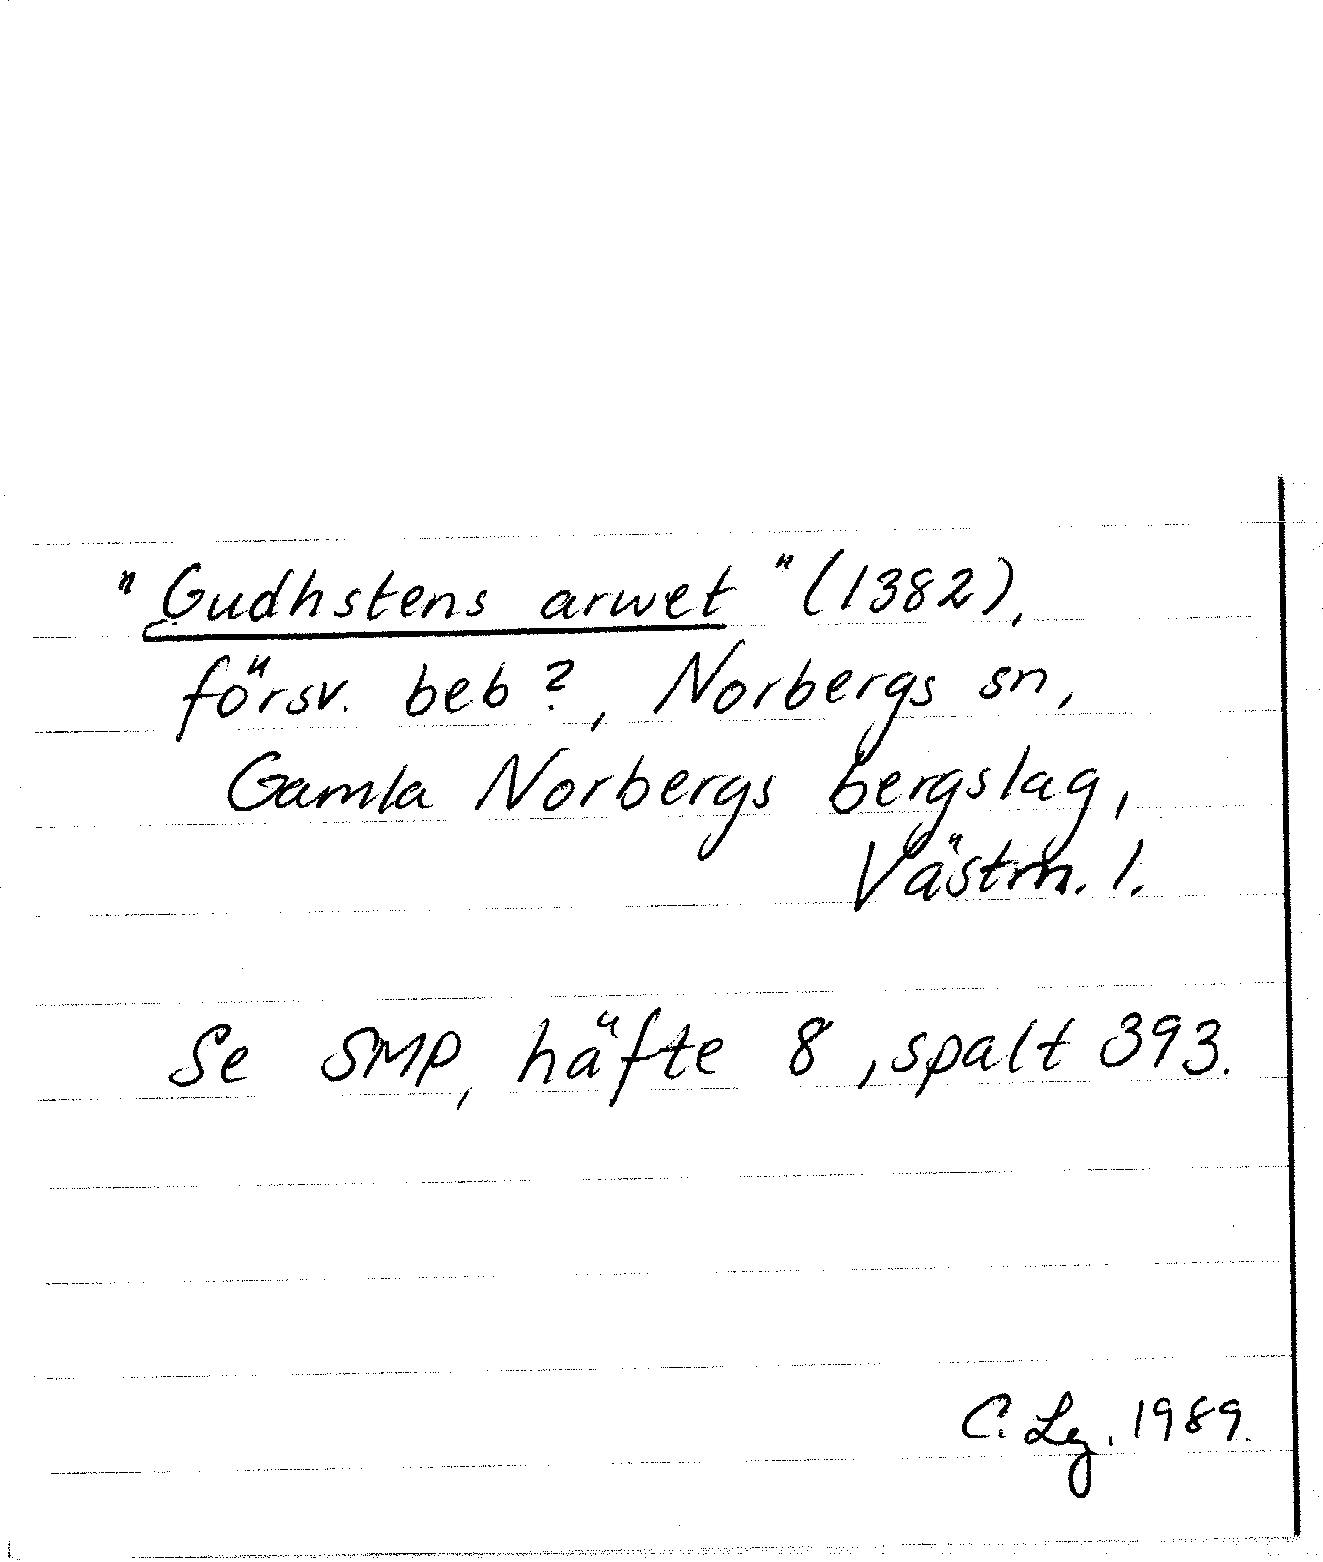 "Gudhstens arwet" (1382),
försv. beb?, Norbergs sn,
Gamla Norbergs bergslag,
Västm. l.
Se SMP, häfte 8, spalt 393.
C. Lg. 1989.